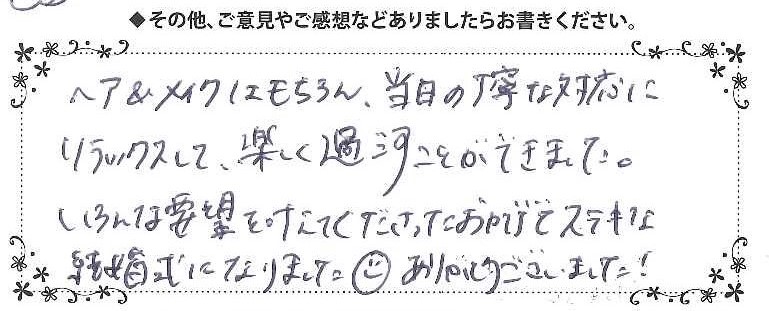 ◆その他、ご意見やご感想などありましたらお書きください。
ヘア&メイクはもちろん、当日の丁寧な対応に
リラックスして、楽しく過ごすことができました。
いろんな要望を叶えてくださったおかげでステキな
結婚式になりました☺ありがとうございました!